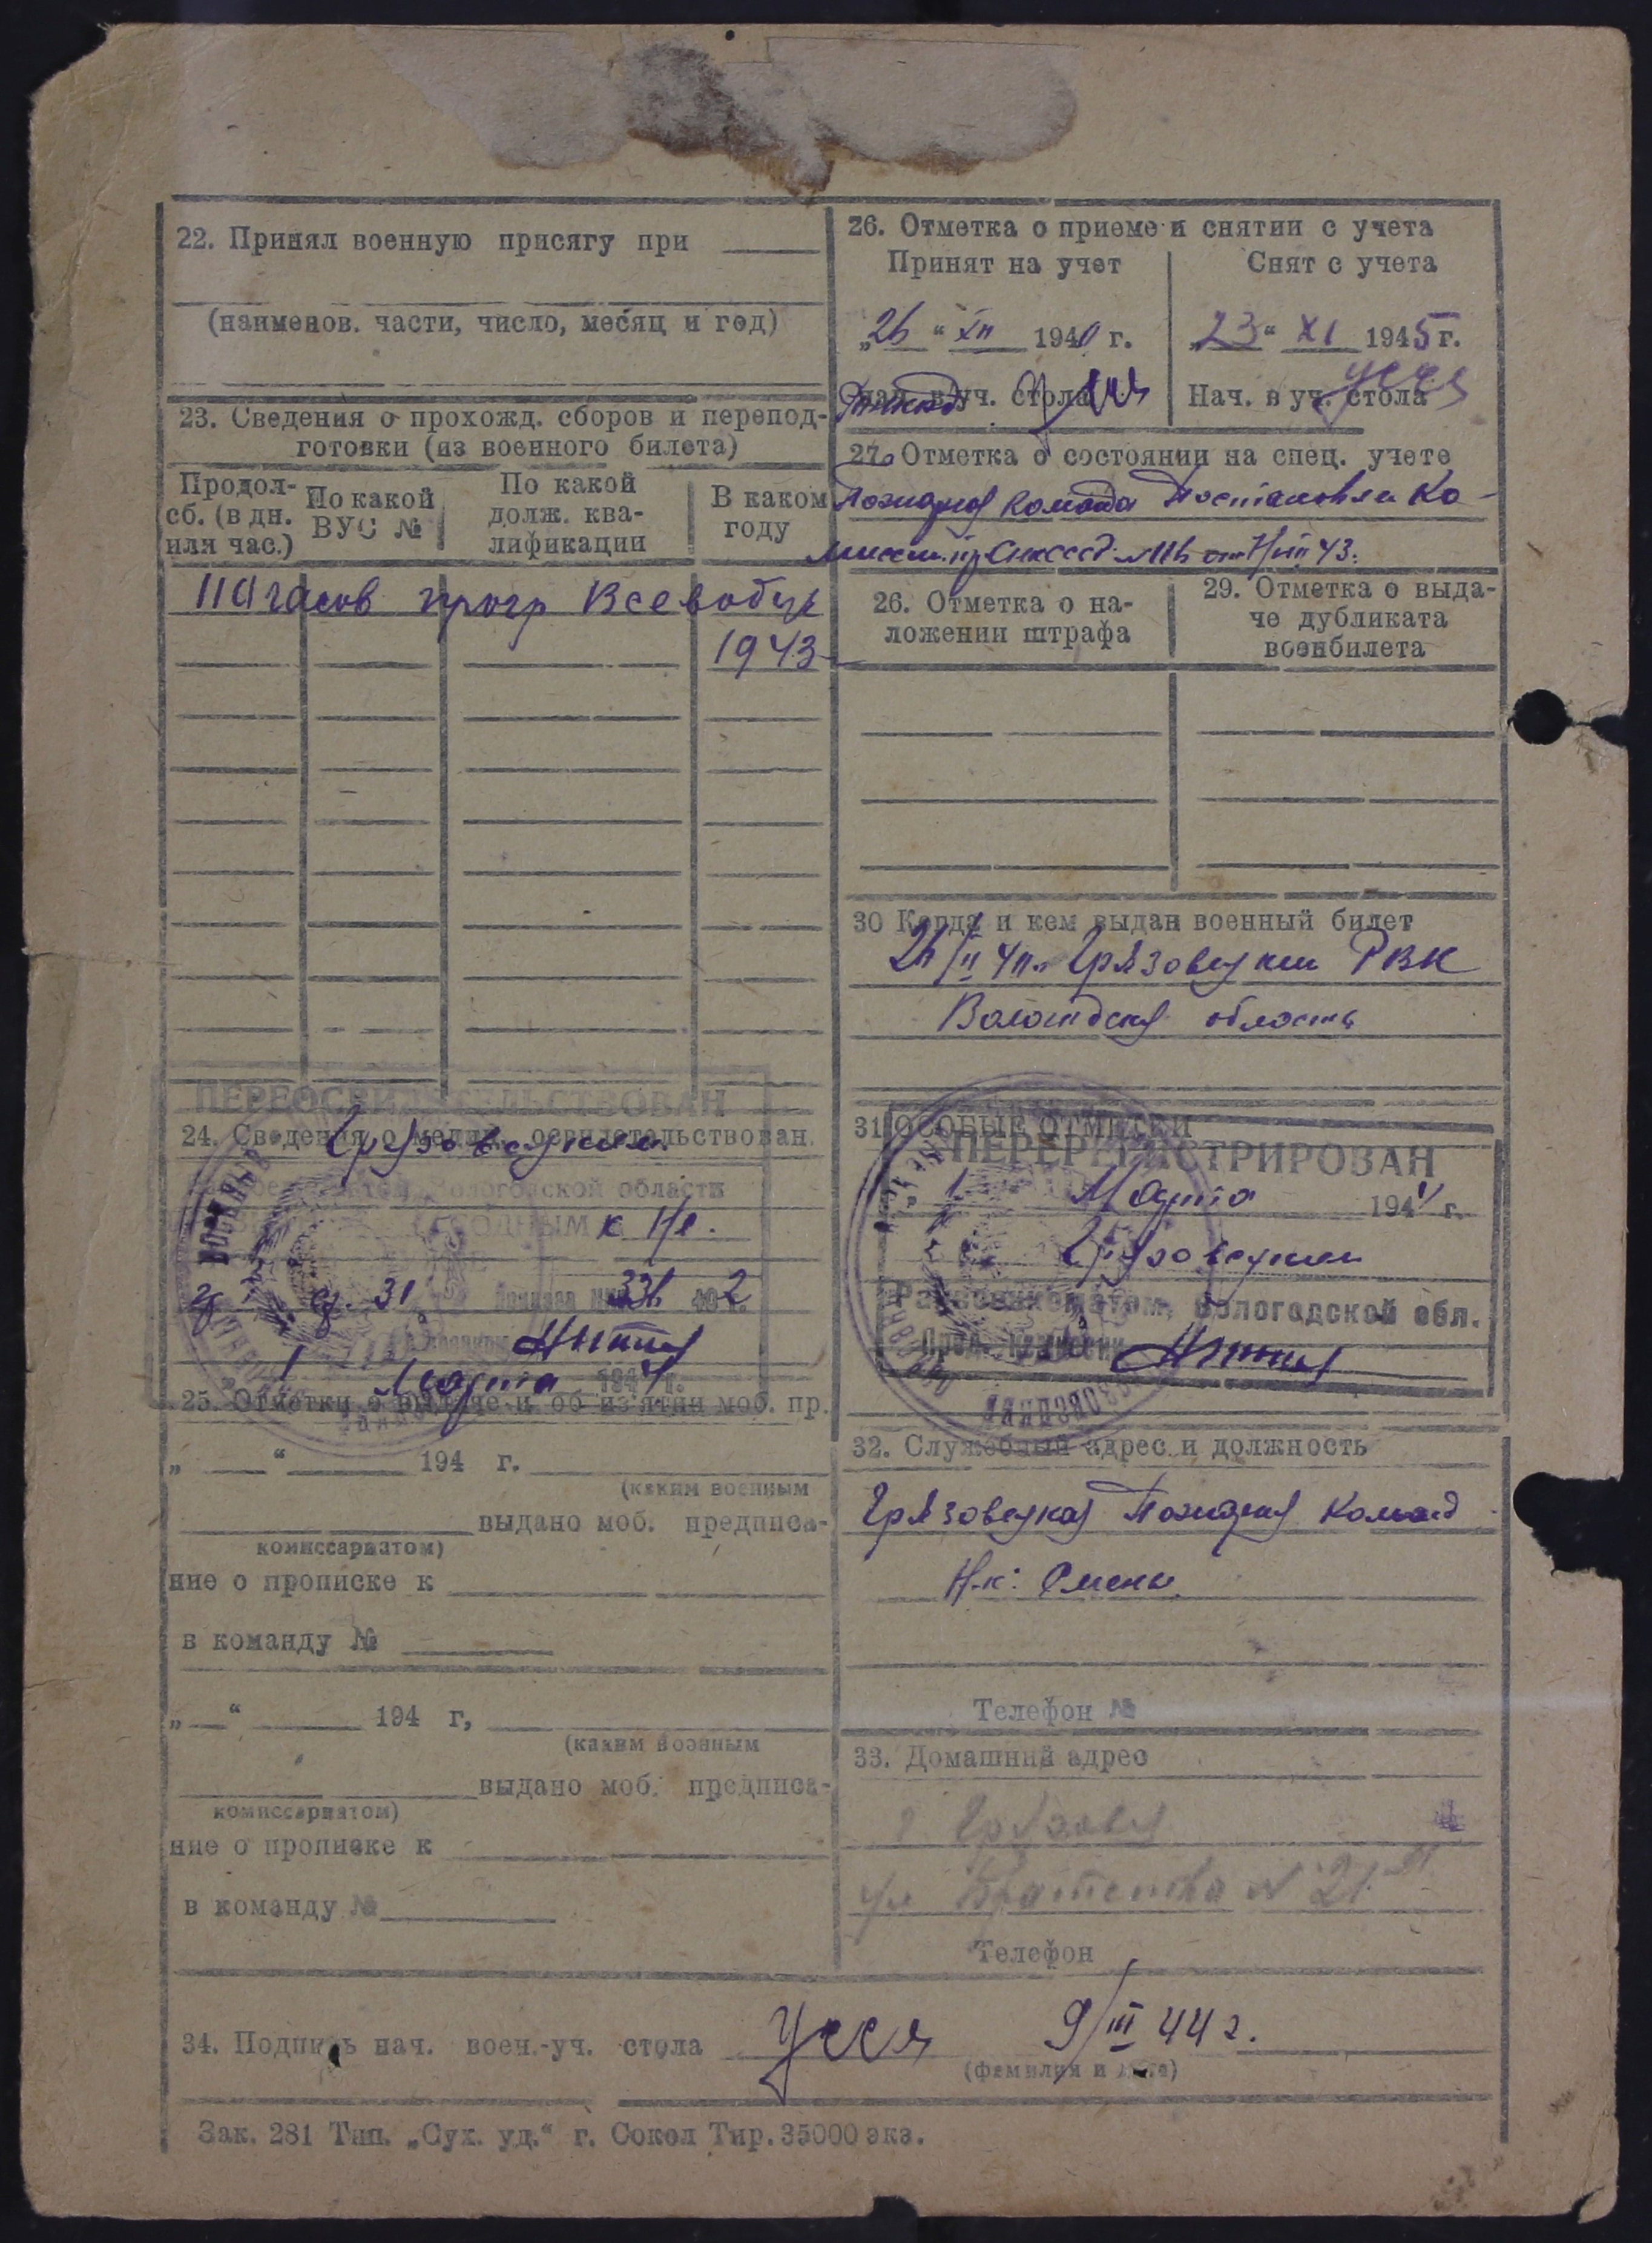 22. Принял военную присягу при
(наименов. части, число, месяц и год)
23. Сведения о прохожд. сборов и перепод-
готовки (из военного билета)
Продол-
сб. (в дн.
или час.)
По какой
ВУС №
По какой
долж. ква-
лификации
В каком
году
110 часов прогр Всевобуч
1943
ПЕРЕОСВИДЕТЕЛЬСТВОВАН
24. Сведения о медиц. освидетельствован.
Грязовецким
Вологодской области
ГОДНЫМ к
31 Приказа 336 2
Марта 1944 г.
25. Отметки о выдаче и об из'ятии моб. пр.
„ “ 194 г.
(каким военным
выдано моб. предписа-
комиссариатом)
ние о прописке к
в команду №
„ “ 194 г,
(каким военным
выдано моб. предписа-
комиссариатом)
ние о прописке к
в команду №
26. Отметка о приеме и снятии с учета
Принят на учет
Снят с учета
„26“ XII 194 г.
„23“ XI 1945 г.
Нач. в уч. стола
Нач. в уч. стола
27. Отметка о состоянии на спец. учете
Пожарная команда Постановлен Ко-
миссии при СНК СССР от 43.
26. Отметка о на-
ложении штрафа
29. Отметка о выда-
че дубликата
военбилета
30 Когда и кем выдан военный билет
Грязовецким РВК
Вологодская область
31 ОСОБЫЕ ОТМЕТКИ
ПЕРЕРЕГИСТРИРОВАН
„1 Марта 1944 г.
Грязовецким
Райвоенкоматом, Вологодской обл.
Пред. комиссии
32. Служебный адрес и должность
Грязовецкая Пожарная Команд
Н-к: Смены
Телефон №
33. Домашний адрес
г Грязовец
ул Братства № 21
Телефон
34. Подпись нач. воен.-уч. стола 9/III 44 г.
(фамилия и дата)
Зак. 281 Тип. „Сух. уд.“ г. Сокол Тир. 35000 экз.